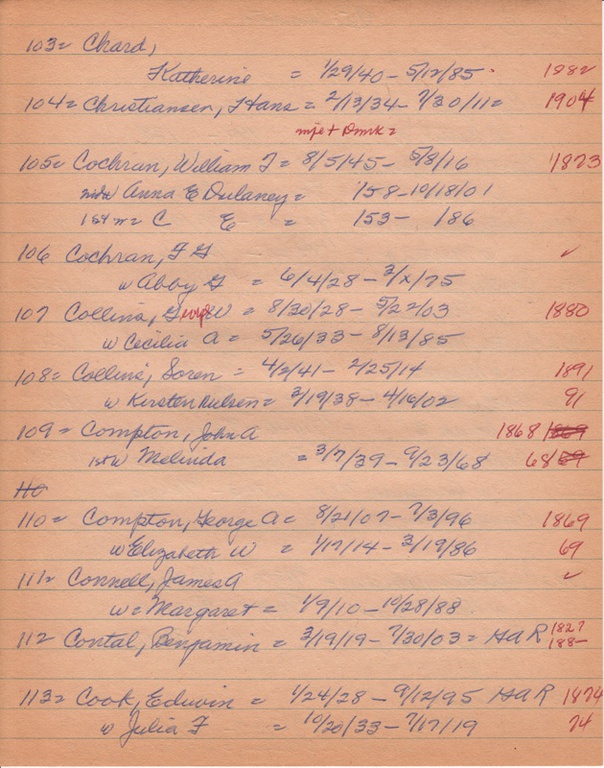 103= Chard,
Katherine = 1/29/40 - 5/12/85. 1882
104= Christiansen, Hans = 2/13/34 - 7/30/11= 1904
mje + Dmrk =
105= Cochran, William J = 8/5/45 - 5/8/16 1873
Anna E Dulaney = '58 - 10/18/01
1st w= C E = 153 - 186
106 Cochran, F G ✓
w Abby G = 6/4/28 - 2/x/75
107 Collins, George W = 8/30/28 - 5/22/03 1880
w Cecilia A = 5/26/33 - 8/13/85
108= Collins, Soren = 4/2/41 - 2/25/14 1891
w Kirsten Nielsen = 3/19/38 - 4/16/02 91
109= Compton, John A 1868 1869
1st w Melinda = 3/7/39 - 9/23/68 68 69
110
110= Compton, George A = 8/21/07 - 7/3/96 1869
w Elizabeth W = 1/17/14 - 3/19/86 69
111= Connell, James A ✓
w= Margaret = 1/9/10 - 10/28/88
112 Contal, Benjamin = 3/19/19 - 7/30/03 = HAR 1827
188-
113= Cook, Edwin = 1/24/28 - 9/12/95 HAR 1874
w Julia F = 10/20/33 - 7/17/19 74